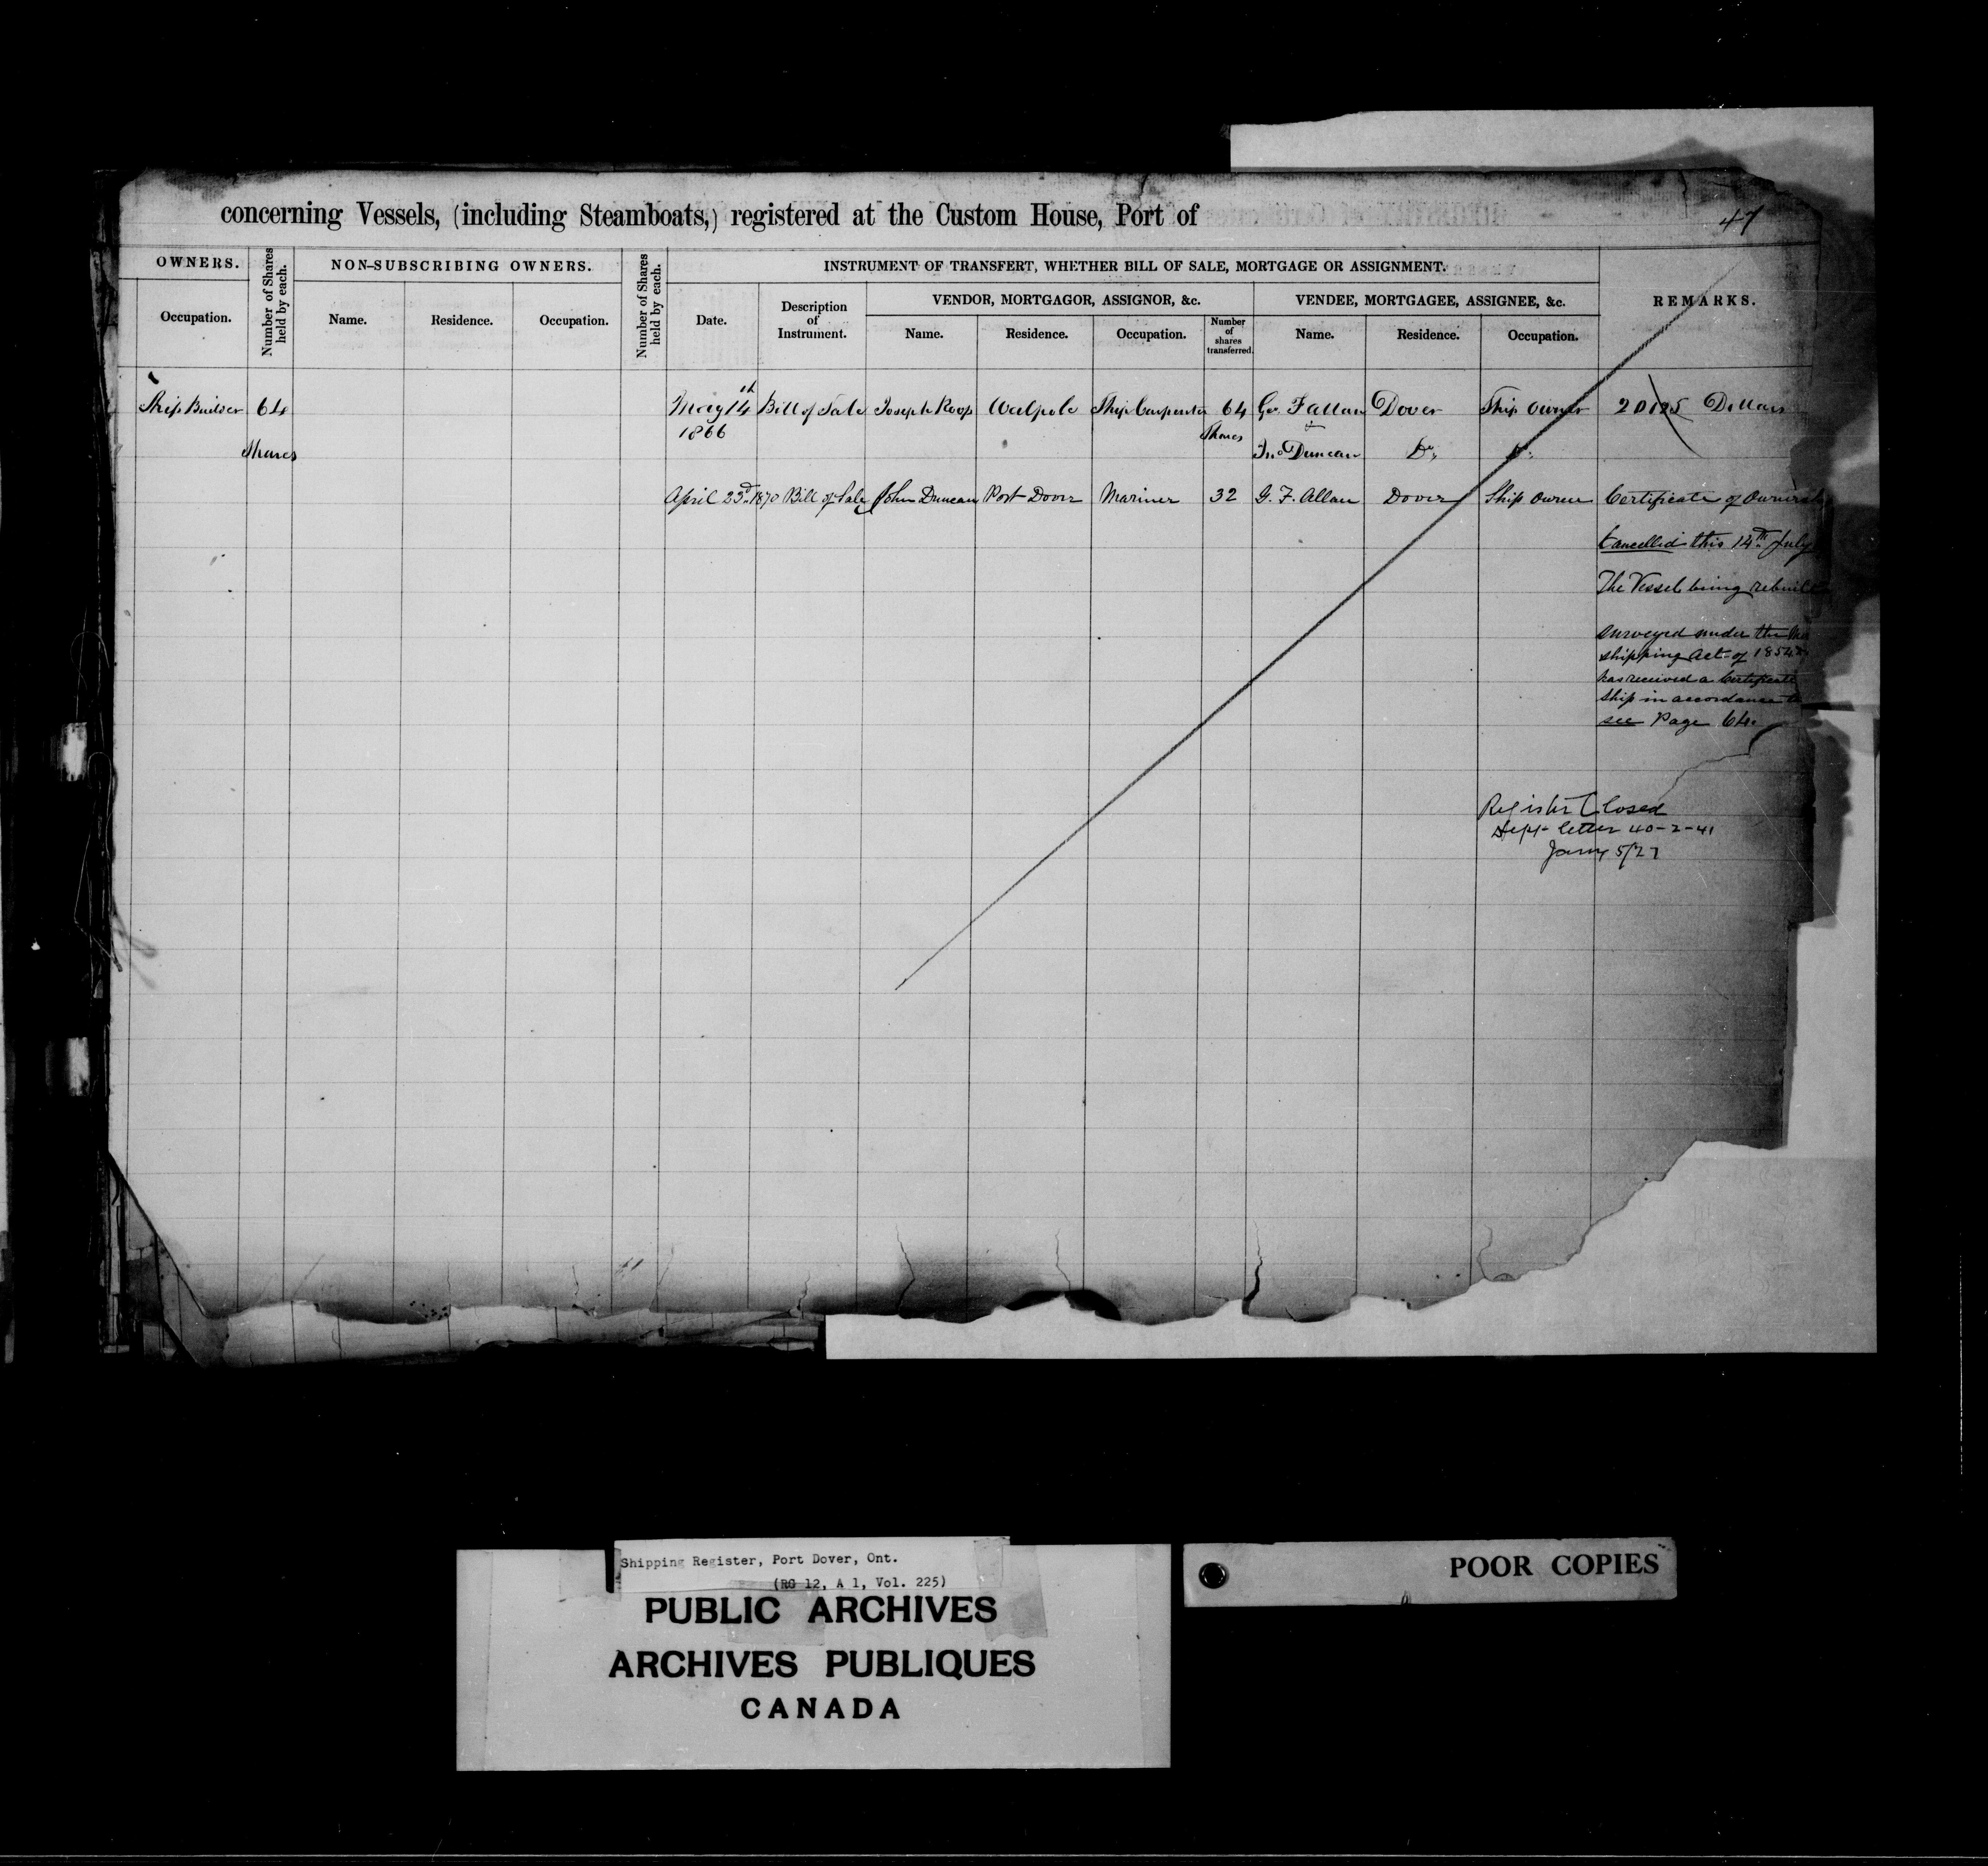 concerning Vessels, (including Steamboats,) registered at the Custom House, Port of
47
OWNERS.
Number of Shares held by each.
NON-SUBSCRIBING OWNERS.
Number of Shares held by each.
INSTRUMENT OF TRANSFERT, WHETHER BILL OF SALE, MORTGAGE OR ASSIGNMENT.
REMARKS.
VENDOR, MORTGAGOR, ASSIGNOR, &c.
VENDEE, MORTGAGEE, ASSIGNEE, &c.
Occupation.
Name.
Residence.
Occupation.
Date.
Description of Instrument.
Name.
Residence.
Occupation.
Number of shares transferred.
Name.
Residence.
Occupation.
Ship Builder 64 May 14th Bill of Sale Joseph Roop Walpole Ship Carpenter 64 Geo. F Allan Dover Ship Owner 20125 Dollars
1866 Shares &
Shares Jno Duncan Do. Do.
April 23d 1870 Bill of Sale John Duncan Port Dover Mariner 32 G. F. Allan Dover Ship Owner Certificate of
Cancelled this 14th July
The Vessel being rebuilt
surveyed under the
shipping Act of 1854
has received a Certificate
ship in accordance
see Page 64.
Register Closed
Dept letter 40-2-41
Jany 5/27
Shipping Register, Port Dover, Ont.
(RG 12, A 1, Vol. 225)
PUBLIC ARCHIVES
ARCHIVES PUBLIQUES
CANADA
POOR COPIES